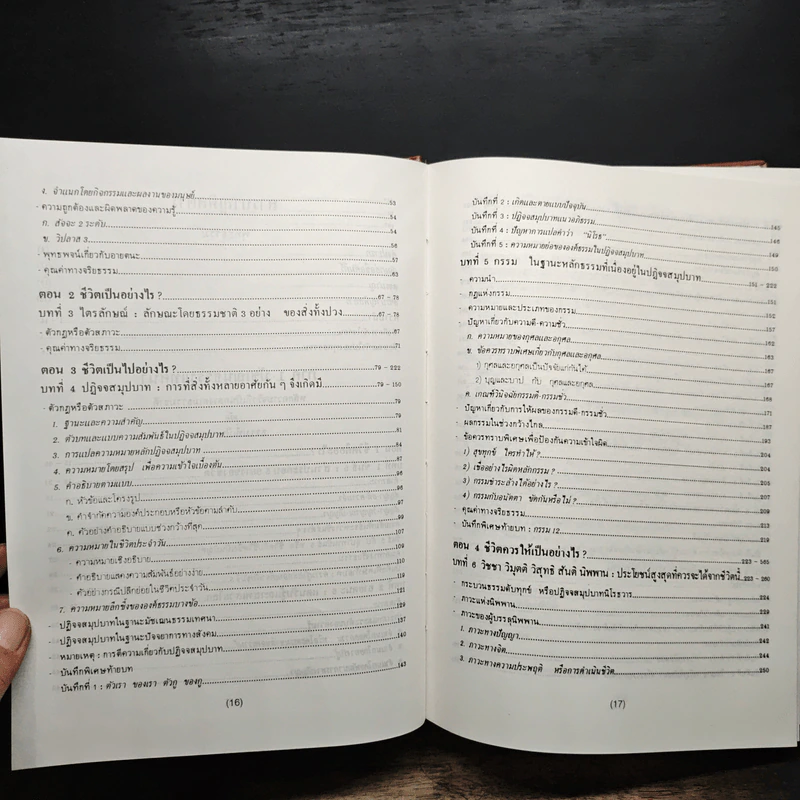 ง. จำแนกโดยกิจกรรมและผลงานของมนุษย์ 53
- ความถูกต้องและผิดพลาดของความรู้ 54
ก. สัจจะ 2 ระดับ 54
ข. วิปลาส 3 56
- พุทธพจน์เกี่ยวกับอายตนะ 57
- คุณค่าทางจริยธรรม 63
ตอน 2 ชีวิตเป็นอย่างไร ? 67 - 78
บทที่ 3 ไตรลักษณ์ : ลักษณะโดยธรรมชาติ 3 อย่าง ของสิ่งทั้งปวง 67 - 78
- ตัวกฎหรือตัวสภาวะ 67
- คุณค่าทางจริยธรรม 71
ตอน 3 ชีวิตเป็นไปอย่างไร ? 79 - 222
บทที่ 4 ปฏิจจสมุปบาท : การที่สิ่งทั้งหลายอาศัยกัน ๆ จึงเกิดมี 79 - 150
- ตัวกฎหรือตัวสภาวะ 79
1. ฐานะและความสำคัญ 79
2. ตัวบทและแบบความสัมพันธ์ในปฏิจจสมุปบาท 81
3. การแปลความหมายหลักปฏิจจสมุปบาท 84
4. ความหมายโดยสรุป เพื่อความเข้าใจเบื้องต้น 87
5. คำอธิบายตามแบบ 95
ก. หัวข้อและโครงรูป 95
ข. คำจำกัดความองค์ประกอบหรือหัวข้อตามลำดับ 97
ค. ตัวอย่างคำอธิบายแบบช่วงกว้างที่สุด 99
6. ความหมายในชีวิตประจำวัน 107
- ความหมายเชิงอธิบาย 110
- คำอธิบายแสดงความสัมพันธ์อย่างง่าย 111
- ตัวอย่างกรณีปลีกย่อยในชีวิตประจำวัน
7. ความหมายลึกซึ้งขององค์ธรรมบางข้อ
- ปฏิจจสมุปบาทในฐานะมัชเฌนธรรมเทศนา
- ปฏิจจสมุปบาทในฐานะปัจจยาการทางสังคม 137
- หมายเหตุ : การตีความเกี่ยวกับปฏิจจสมุปบาท 140
- บันทึกพิเศษท้ายบท
บันทึกที่ 1 : ตัวเรา ของเรา ตัวกู ของกู 143
(16)
บันทึกที่ 2 : เกิดและตายแบบปัจจุบัน
บันทึกที่ 3 : ปฏิจจสมุปบาทแนวอภิธรรม 145
บันทึกที่ 4 : ปัญหาการแปลคำว่า "นิโรธ" 146
บันทึกที่ 5 : ความหมายย่อขององค์ธรรมในปฏิจจสมุปบาท 149
บทที่ 5 กรรม ในฐานะหลักธรรมที่เนื่องอยู่ในปฏิจจสมุปบาท 151 - 222
- ความนำ 151
- กฎแห่งกรรม 152
- ความหมายและประเภทของกรรม 157
- ปัญหาเกี่ยวกับความดี-ความชั่ว 161
ก. ความหมายของกุศลและอกุศล
ข. ข้อควรทราบพิเศษเกี่ยวกับกุศลและอกุศล
1) กุศลและอกุศลเป็นปัจจัยแก่กันได้
2) บุญและบาป กับ กุศลและอกุศล
ค. เกณฑ์วินิจฉัยกรรมดี-กรรมชั่ว 171
- ปัญหาเกี่ยวกับการให้ผลของกรรมดี-กรรมชั่ว
- ผลกรรมในช่วงกว้างไกล 187
- ข้อควรทราบพิเศษเพื่อป้องกันความเข้าใจผิด 193
1) สุขทุกข์ ใครทำให้ ? 204
2) เชื่ออย่างไรผิดหลักกรรม ? 204
3) กรรมชำระล้างได้อย่างไร ? 205
4) กรรมกับอนัตตา ขัดกันหรือไม่ ? 207
- คุณค่าทางจริยธรรม 209
- บันทึกพิเศษท้ายบท : กรรม 12 213
219
ตอน 4 ชีวิตควรให้เป็นอย่างไร ? 223 - 365
บทที่ 6 วิชชา วิมุตติ วิสุทธิ สันติ นิพพาน : ประโยชน์สูงสุดที่ควรจะได้จากชีวิตนี้ 223 - 260
- กระบวนธรรมดับทุกข์ หรือปฏิจจสมุปบาทนิโรธวาร 224
- ภาวะแห่งนิพพาน 229
- ภาวะของผู้บรรลุนิพพาน 241
1. ภาวะทางปัญญา 242
2. ภาวะทางจิต 244
3. ภาวะทางความประพฤติ หรือการดำเนินชีวิต 250
(17)